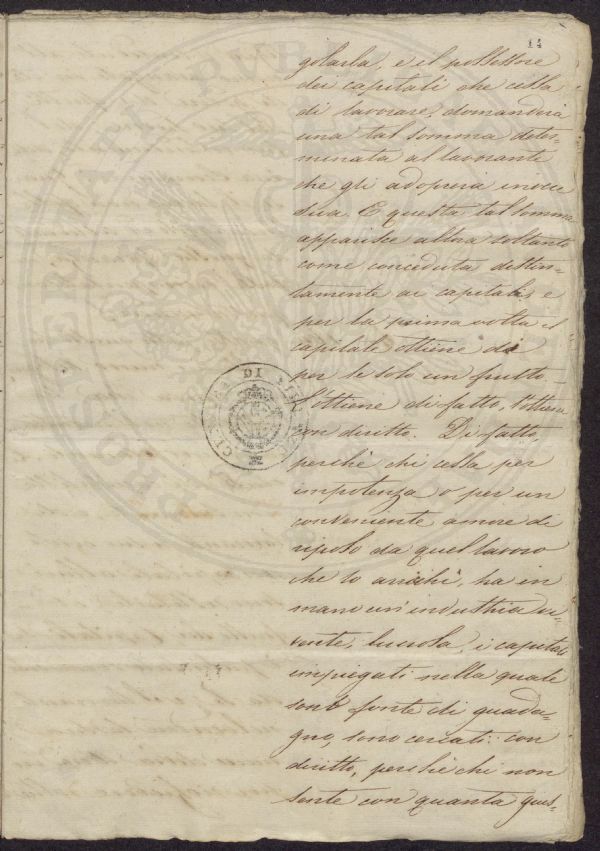 14
golarla, e il possessore
dei capitali che cessa
di lavorare, domanderà
una tal somma deter-
minata al lavorante
che gli adoprerà invece
sua. E questa tal somma
apparisce allora soltanto
come conceduta distin-
tamente ai capitali, e
per la prima volta il
capitale ottiene da
per se solo un frutto.
L'ottiene di fatto, l'ottiene
con diritto. Di fatto,
perchè chi cessa per
impotenza o per un
conveniente amore di
riposo da quel lavoro
che lo arrichì, ha in
mano un'industria vi-
vente, lucrosa, i capitali
impiegati nella quale
sono fonte di guada-
gno, sono cercati: con
diritto, perchè chi non
sente con quanta gius-